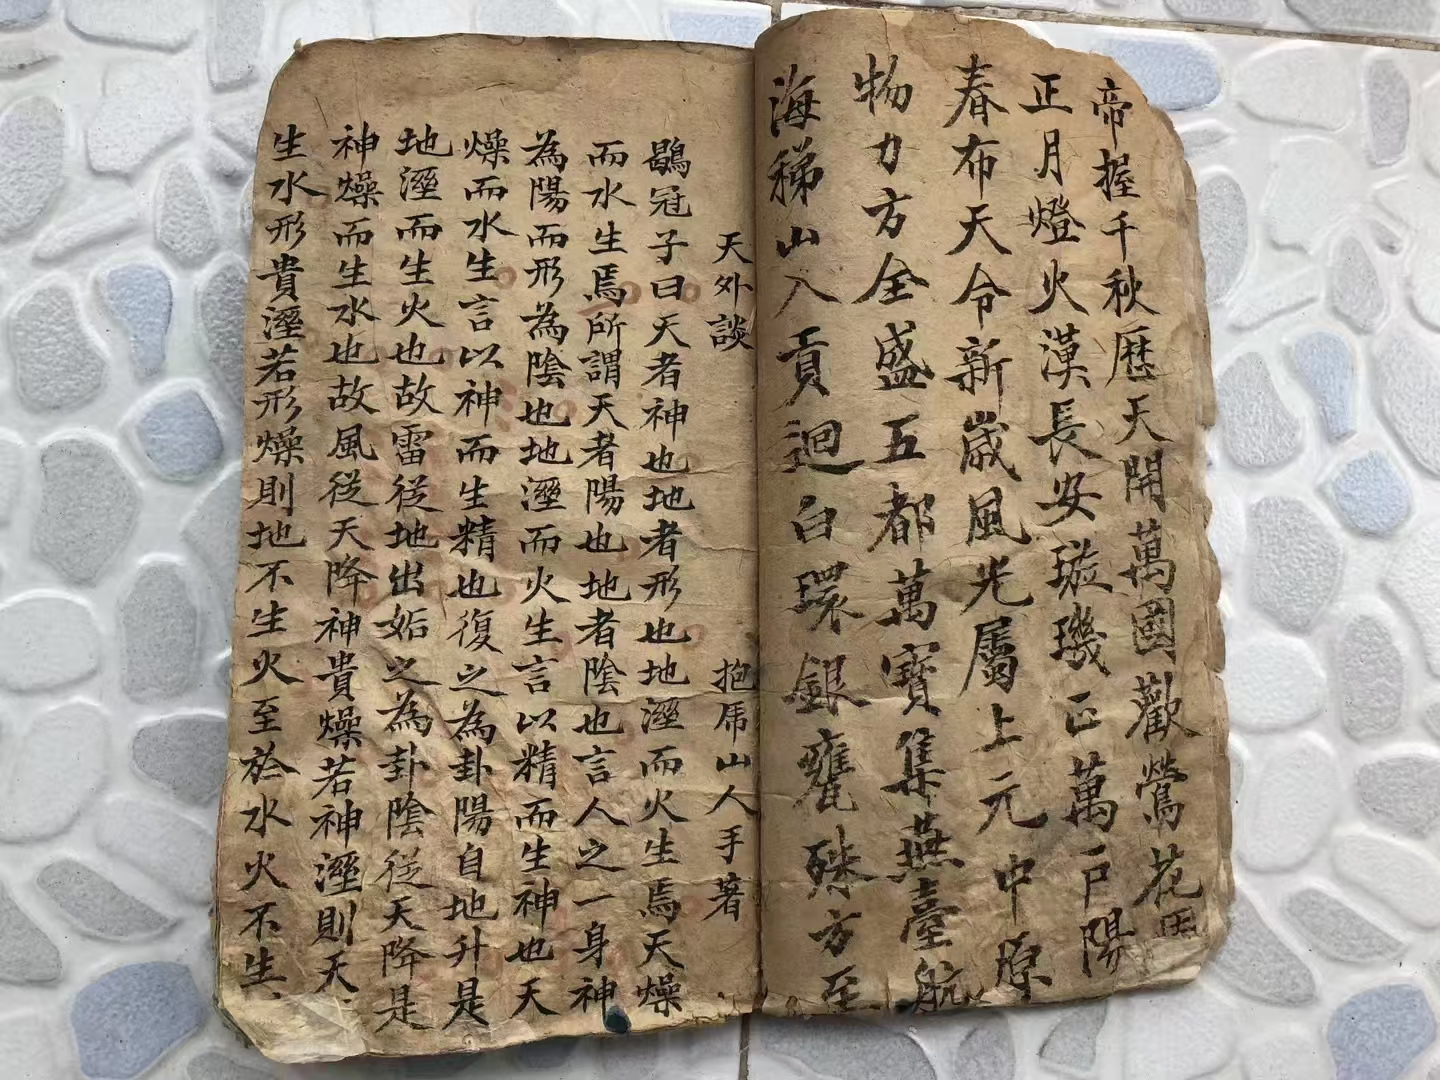 帝握千秋歷天開萬國歡鶯花
正月燈火漢長安璇璣正萬戶陽
春布天令新歲風光屬上元中原
物力方全盛五都萬寶集燕臺航
海稊山入貢迴白環銀甕殊方至
天外談 抱虎山人手著
鶡冠子曰天者神也地者形也地溼而火生焉天燥
而水生焉所謂天者陽也地者陰也言人之一身神
為陽而形為陰也地溼而火生言以精而生神也天
燥而水生言以神而生精也復之為卦陽自地升是
地溼而生火也故雷從地出姤之為卦陰從天降是
神燥而生水也故風從天降神貴燥若神溼則天
生水形貴溼若形燥則地不生火至於水火不生